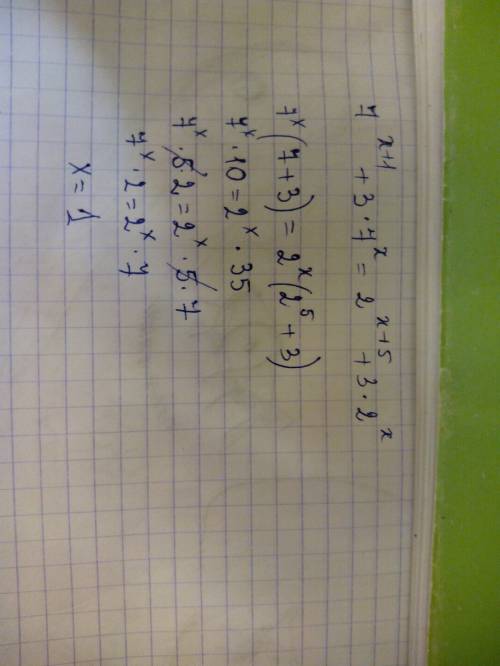 7^{x+1} + 3·7^x = 2^{x+5} + 3·2^x
7^x(7+3) = 2^x(2^5+3)
7^x·10 = 2^x·35
7^x·5·2 = 2^x·5·7
7^x·2 = 2^x·7
x = 1